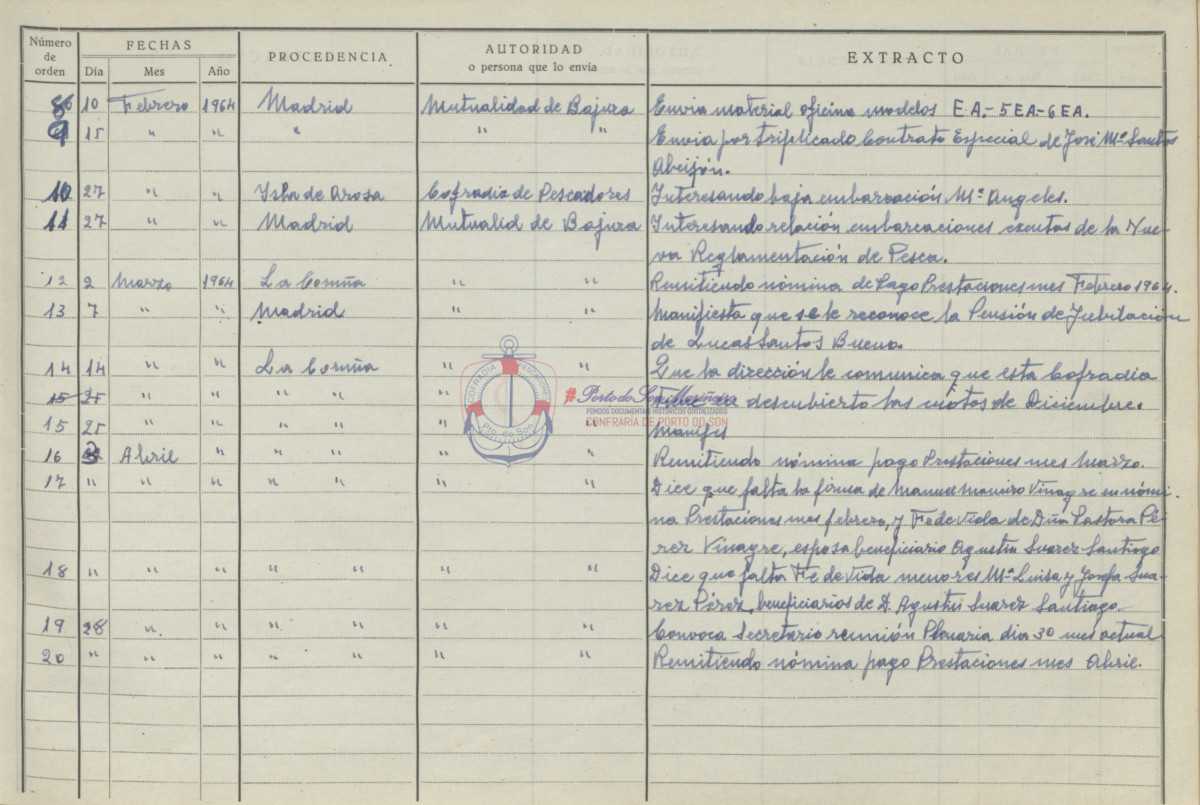 Número de orden FECHAS PROCEDENCIA AUTORIDAD o persona que lo envía EXTRACTO
Día Mes Año
8 10 Febrero 1964 Madrid Mutualidad de Bajura Envia material oficina modelos EA.-5EA-6EA.
9 15 " " " " " Envia por triplicado Contrato Especial de José Mª Santos
Abeijón.
10 27 " " Isla de Arosa Cofradia de Pescadores Interesando baja embarcación Mª Angeles.
11 27 " " Madrid Mutualid de Bajura Interesando relación embarcaciones exentas de la Nue-
va Reglamentación de Pesca.
12 2 Marzo 1964 La Coruña " " Remitiendo nómina de Pago Prestaciones mes Febrero 1964.
13 7 " " Madrid " " Manifiesta que se le reconoce la Pensión de Jubilación
de Lucas Santos Bueno.
14 14 " " La Coruña " " Que la dirección le comunica que esta Cofradia
15 25 " " " " " " descubierto las cuotas de Diciembre.
15 25 " " " " " " Manifes
16 3 Abril " " " " " Remitiendo nómina pago Prestaciones mes Marzo.
17 " " " " " " " Dice que falta la firma de Manuel Maneiro Vinagre en nómi-
na Prestaciones mes febrero, y Fe de Vida de Dña Pastora Pé-
rez Vinagre, esposa beneficiario Agustin Suarez Santiago
18 " " " " " " " Dice que falta Fe de Vida menores Mª Luisa y Josefa Sua-
rez Pérez, beneficiarios de D. Agustin Suarez Santiago.
19 28 " " " " " " Convoca Secretario reunión Plenaria dia 30 mes actual
20 " " " " " " " Remitiendo nómina pago Prestaciones mes Abril.
COFRADIA PESCADORES
Pto. de Son
#PortodoSonMariñeiro
FONDOS DOCUMENTAIS HISTÓRICOS DIXITALIZADOS
CONFRARÍA DE PORTO DO SON